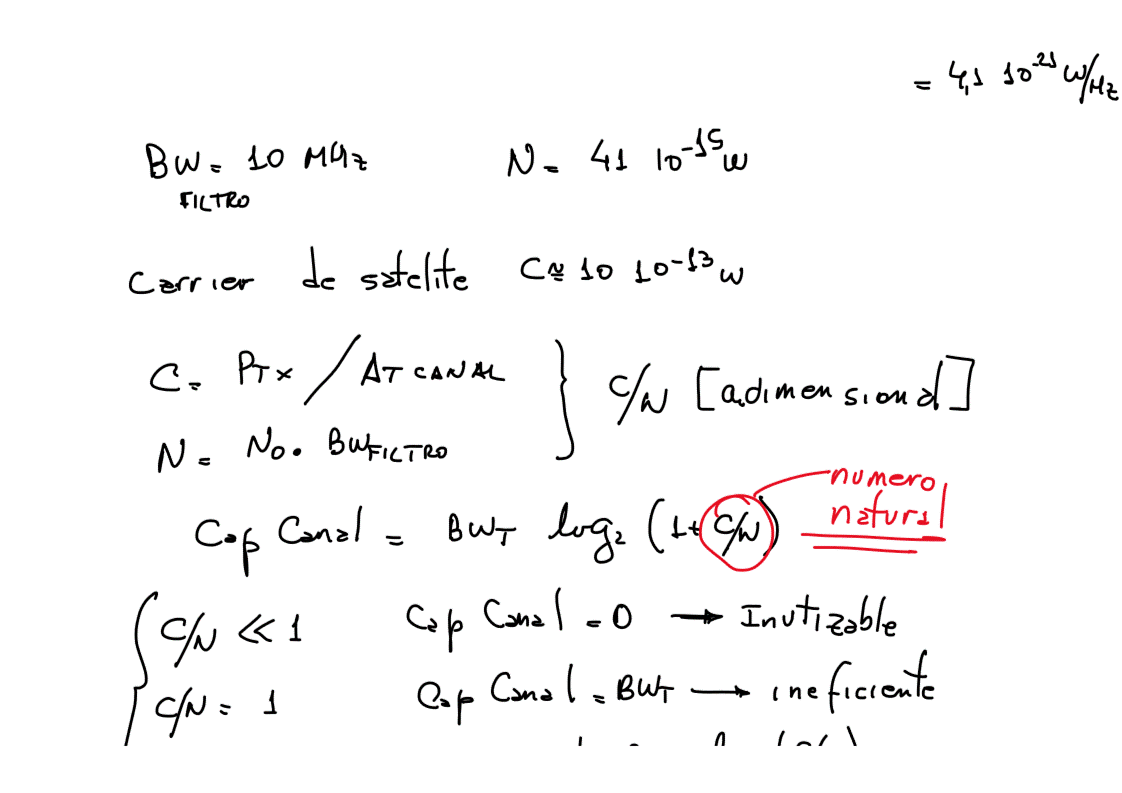 = 4,1 10^-21 W/Hz
BW = 10 MHz N = 41 10^-15 W
FILTRO
Carrier de satelite C ≈ 10 10^-13 W
C = PTx / AT CANAL } C/N [adimensional]
N = No. BW FILTRO
numero
natural
Cap Canal = BW_T log_2 (1 + C/N)
C/N << 1 Cap Canal = 0 → Inutizable
C/N = 1 Cap Canal = BW_T → ineficiente